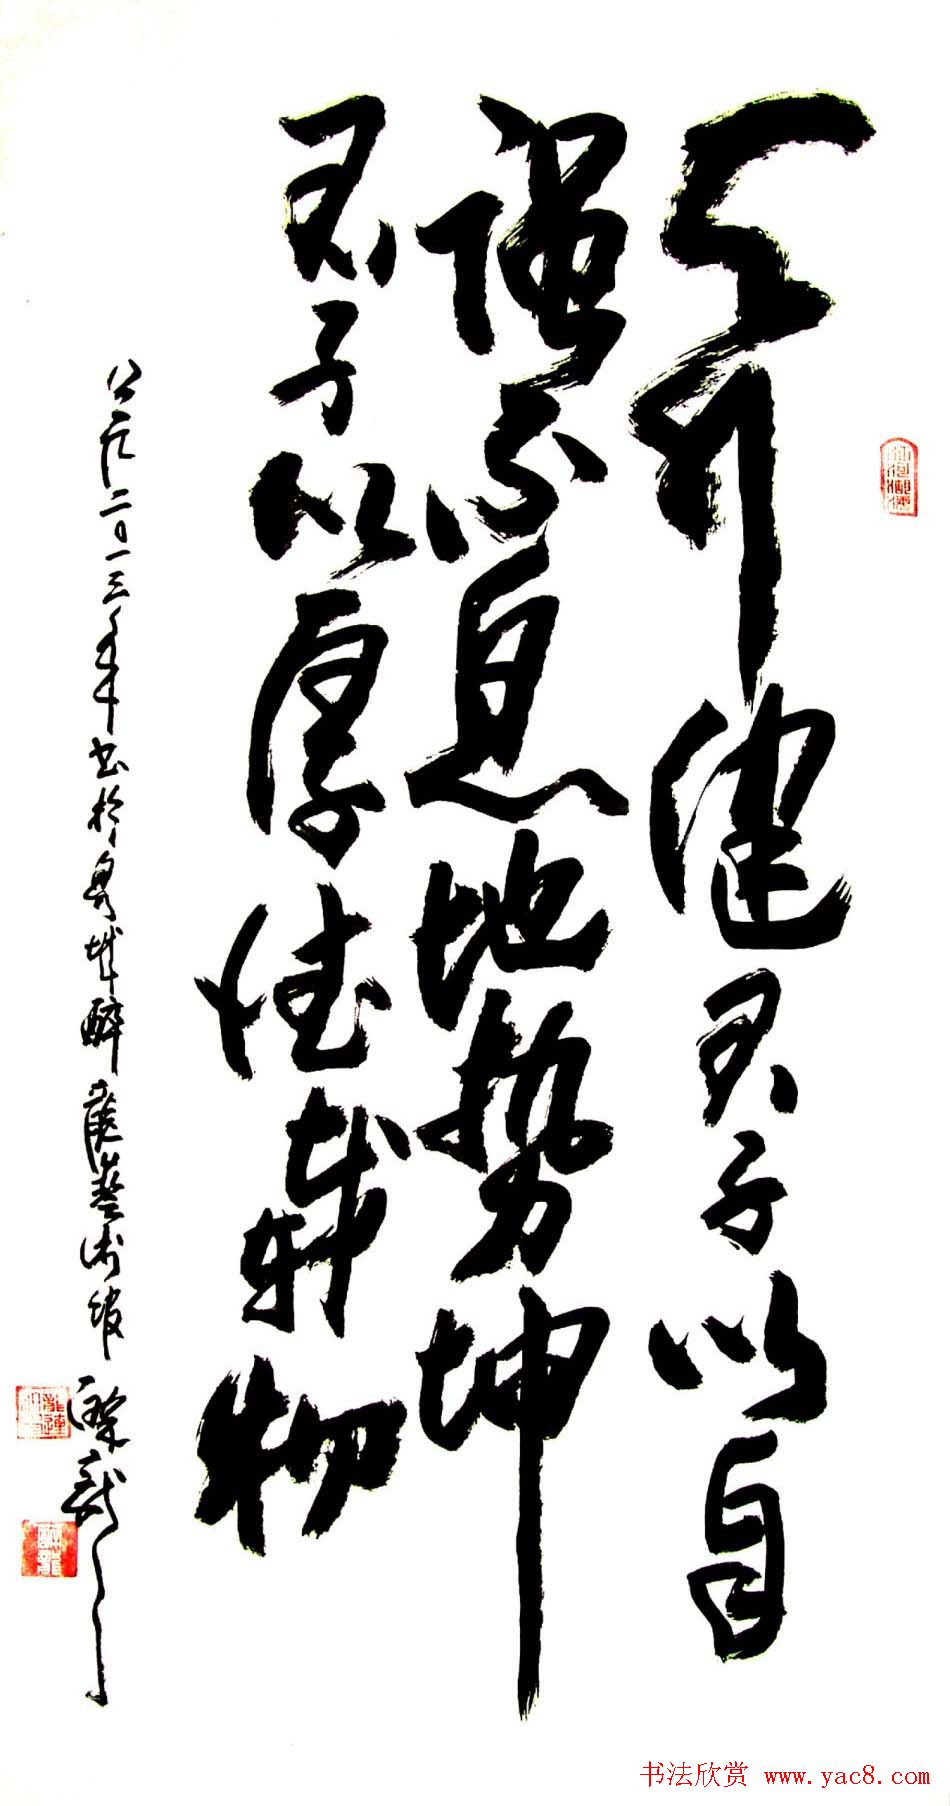 天行健君子以自
强不息地势坤
君子以厚德载物
公元二〇一三年书於泉城醉藝术馆
书法欣赏 www.yac8.com